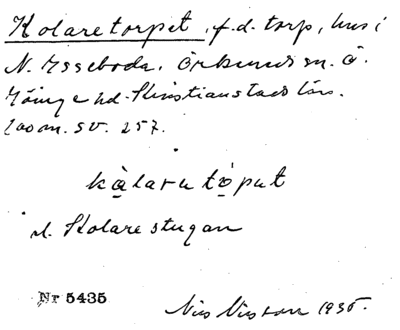 Kolaretorpet, f.d. torp, hus i
N. Esseboda, Örkeneds sn. Ö.
Göinge hd. Kristianstads län.
sv. 257.
kålaru töput
el. Kolarestugan
Nr 5435
Nils Nilsson 1935.